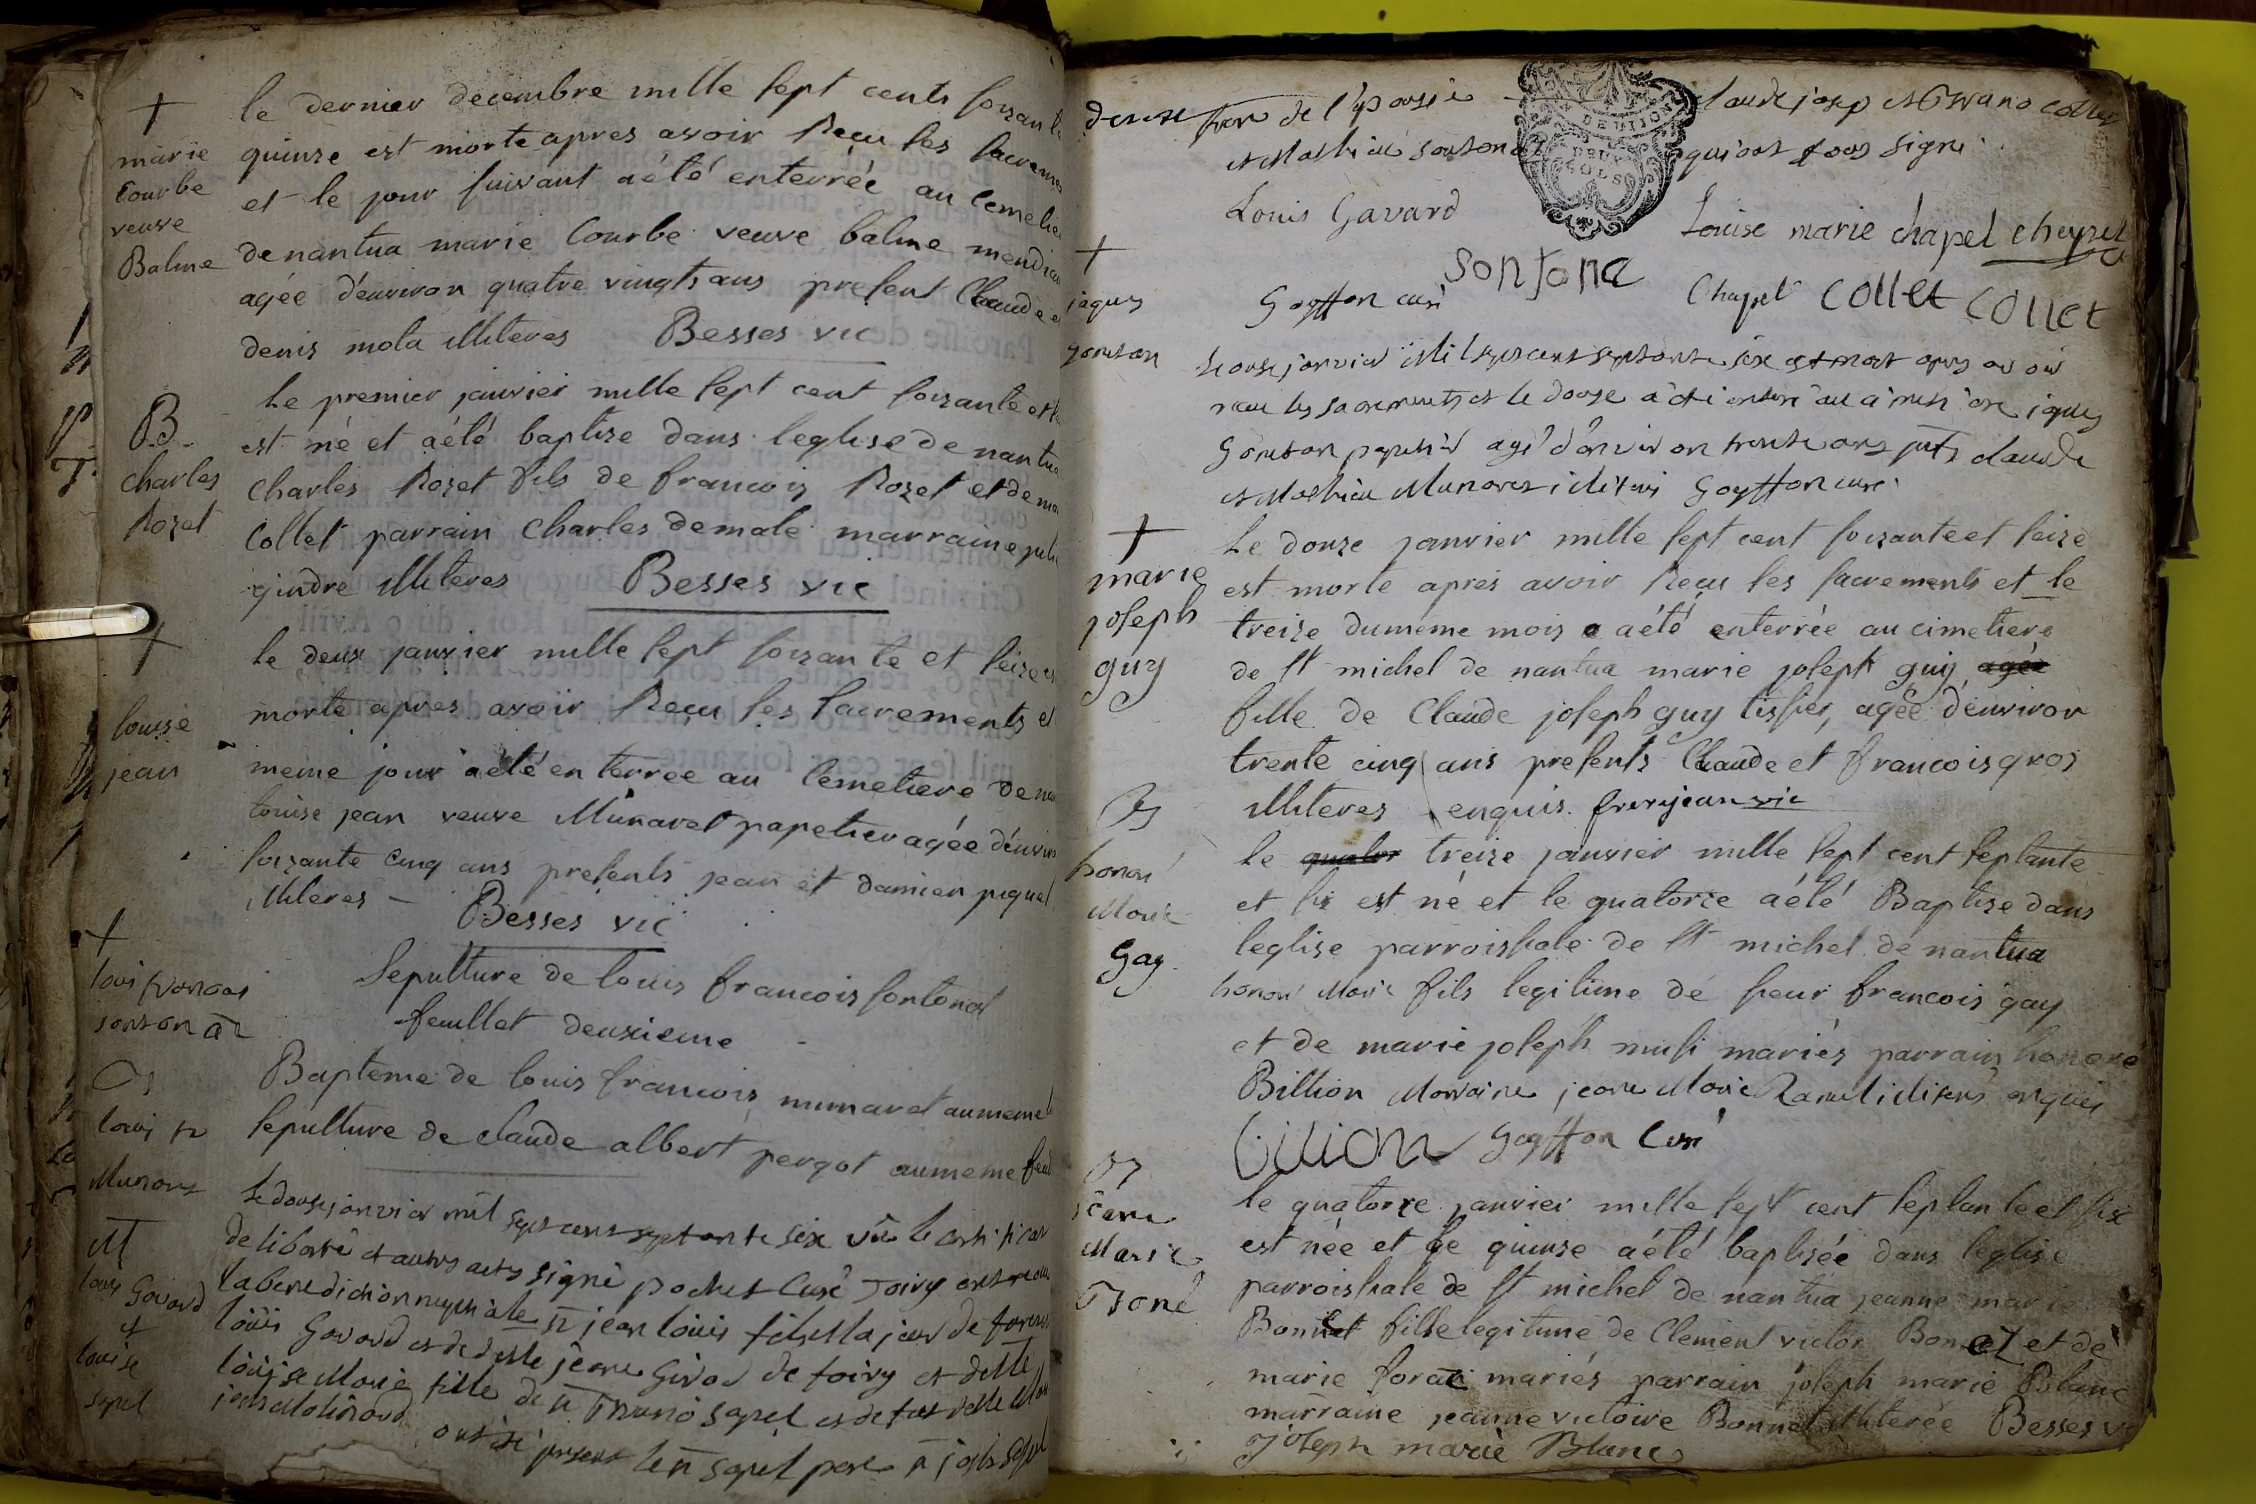 +
marie
Courbe
veuve
Balme
le dernier decembre mille sept cents soixante
quinse est morte apres avoir Reçu les sacremen
et le jour suivant aété enterrée au Cemetie
de nantua marie Courbe veuve balme mendian
agée d'environ quatre vingts ans present Claude e
denis mola illiteres Besses vic
B
charles
Rozet
Le premier janvier mille sept cent soizante et
est né et aété baptize dans leglise de nantua
Charles Rozet fils de francois Rozet et de ma
Collet parrain Charles demale marraine juli
gindre illiteres Besses vic
+
louise
jean
le deux janvier mille sept soizante et seize es
morte apres avoir Reçu les sacrements et
meme jour aété enterree au Cemetiere de na
louise jean veuve Munaret papetier agée d'enviro
soizante cinq ans presents jean et damien piquet
illiteres - Besses vic
+
loui francois
sontonaz
Sepulture de louis francois sontonax
feuillet deuxieme
loui fr
Munaret
Bapteme de louis francois munaret au meme
sepulture de claude albert pergot au meme feui
M
loui Gavard
et
louise
Sapel
le douse janvier mil sept cent septante six vû le certificat
de liberté et autres actes signé pochet Curé
la benediction nuptiale jean loüis fils
loüis Gavard et de jeane Girod de et de
loüise Marie fille de Sapel et de
ont été present le Sapel pere
frere de l'epouse Claude josep Collet
et Mathieu sontonaz qui ont tous signé
DEUX
SOLS
Louis Gavard
Louise marie chapel cheynet
sontona
Goyffon curé
Chapel Collet Collet
+
jaques
Goneson
Le onse janvier Mil sept cent septante six est mort apres avoir
recu les sacrements et le douse a été enteré au cimetiere jaques
Goneson papetier agé d'environ trente ans pnts claude
et Mathieu Munaret iliteres Goyffon curé
+
marie
joseph
guy
Le douze janvier mille sept cent soizante et seize
est morte apres avoir Reçu les sacrements et le
treize du meme mois aété enterrée au cimetiere
de st michel de nantua marie joseph guy agée
fille de Claude joseph guy tissier, agée d'environ
trente cinq ans presents Claude et francois gros
illiteres enquis. frerejean vic
honoré
Marie
Gay
le quator treize janvier mille sept cent septante
et six est né et le quatorze aété Baptize dans
leglise parroissiale de st michel de nantua
honoré Marie fils legitime de sieur francois gay
et de marie joseph musi mariés parrain honoré
Billion Marraine jeane Marie iliterés enquis
Billion Goyffon Curé
jeane
Marie
Boné
le quatorze janvier mille sept cent septante et six
est née et le quinse aété baptisée dans leglise
parroissiale de st michel de nantua jeanne marie
Bonnet fille legitime de Clement victor Bonnet et de
marie forat mariés parrain joseph marie Blanc
marraine jeanne victoire Bonnet illiterée Besses vic
joseph marie Blanc